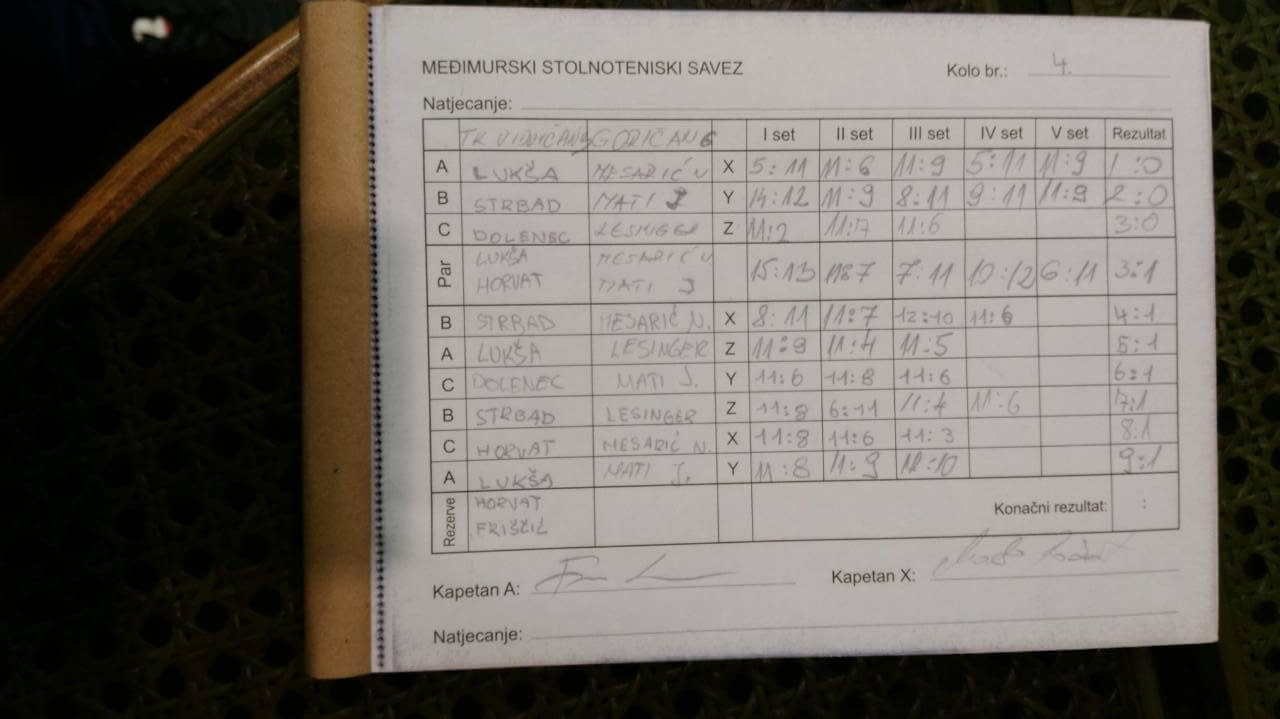 MEĐIMURSKI STOLNOTENISKI SAVEZ Kolo br.: 4.
Natjecanje:
I set II set III set IV set V set Rezultat
A LUKŠA MESARIĆ N X 5:11 11:6 11:9 5:11 11:9 1:0
B STRBAD MATI J Y 14:12 11:9 8:11 9:11 11:9 2:0
C DOLENEC Z 11:2 11:6 3:0
Par LUKŠA MESARIĆ N
HORVAT MATI J 15:13 11:7 7:11 10:12 6:11 3:1
B STRBAD MESARIĆ N. X 8:11 11:7 12:10 11:6 4:1
A LUKŠA LESINGER Z 11:9 11:4 11:5 5:1
C DOLENEC MATI J. Y 11:6 11:8 11:6 6:1
B STRBAD LESINGER Z 11:8 6:11 11:4 11:6 7:1
C HORVAT MESARIĆ N. X 11:8 11:6 11:3 8:1
A LUKŠA MATI J. Y 11:8 11:9 12:10 9:1
Rezerve HORVAT
FRIŠČIĆ
Konačni rezultat: :
Kapetan A: Kapetan X:
Natjecanje: